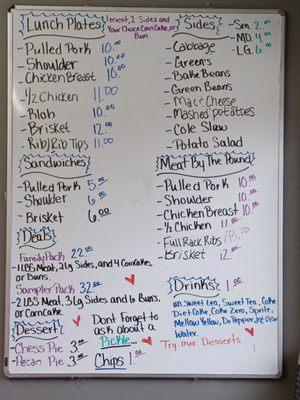 Lunch Plates
1 meat, 2 Sides and
Your Choice Corn Cake, or
Bun.
- Pulled Pork 10.00
- Shoulder 10.00
- Chicken Breast 10.00
- 1/2 Chicken 11.00
- Blob 10.00
- Brisket 12.00
- Rib/Rib Tips 11.00
Sandwiches
- Pulled Pork 5.00
- Shoulder 6.00
- Brisket 6.00
Deals
Family Pack 22.00
- 1 LBS Meat, 2 Lg Sides, and 4 Corn Cakes,
or Buns.
Sampler Pack 32.00
- 2 LBS Meat, 3 Lg Sides and 6 Buns
or Corn Cake.
Dessert
- Chess Pie 3.00
- Pecan Pie 3.00
Dont Forget to
ask about a
Pickle...
Chips 1.00
Sides
- Sm. 2.00
- MD 4.00
- LG. 6.00
- Cabbage
- Green's
- Bake Beans
- Green Beans
- Mac & Cheese
- Mashed potatoes
- Cole Slaw
- Potato Salad
Meat By The Pound
- Pulled Pork 10.00
- Shoulder 10.00
- Chicken Breast 10.00
- 1/2 Chicken 11.00
- Full Rack Ribs
- Brisket 12.00
Drinks 1.00
un Sweet Tea, Sweet Tea, Coke
Diet Coke, Coke Zero, Sprite,
Mellow Yellow, Dr Pepper,
Water.
Try our Desserts